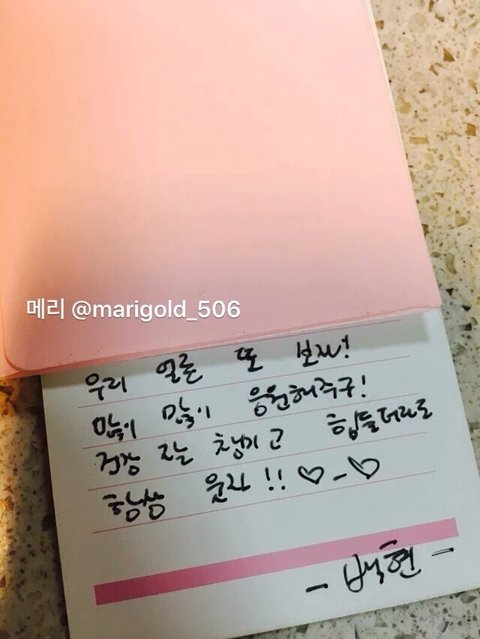 메리 @marigold_506
우리 얼른 또 보자!
많이 많이 응원해주구!
건강 잘 챙기고 힘들더라도
항상 웃자!! ♡_♡
- 백현 -